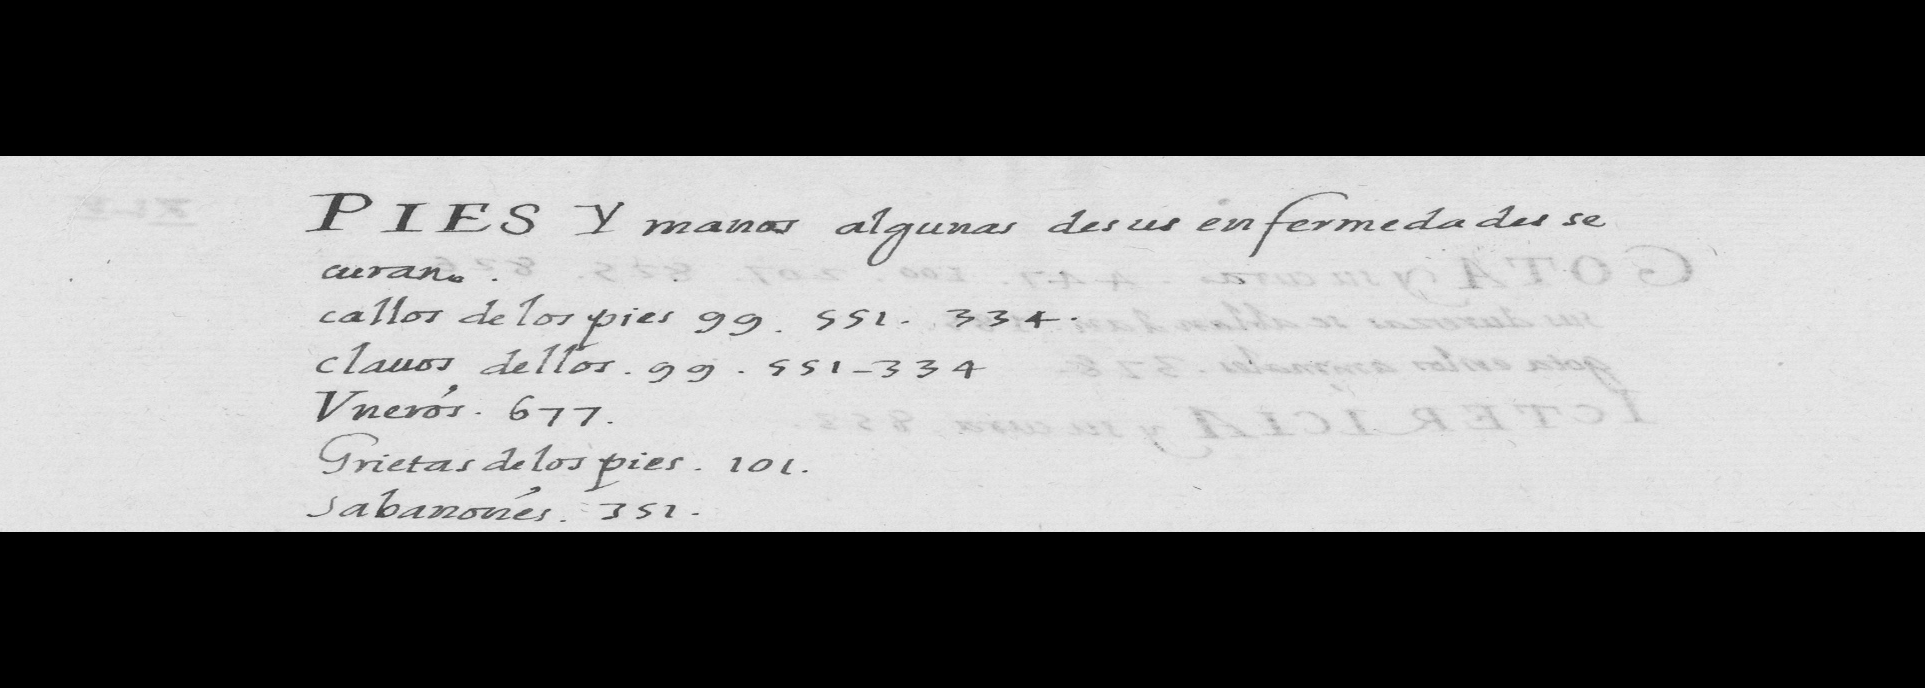 PIES Y manos algunas desus enfermedades se
curan.
callos delos pies 99. 551. 334.
clauos dellos. 99. 551-334
Vnerós. 677.
Grietas delos pies. 101.
Sabanonés. 351.